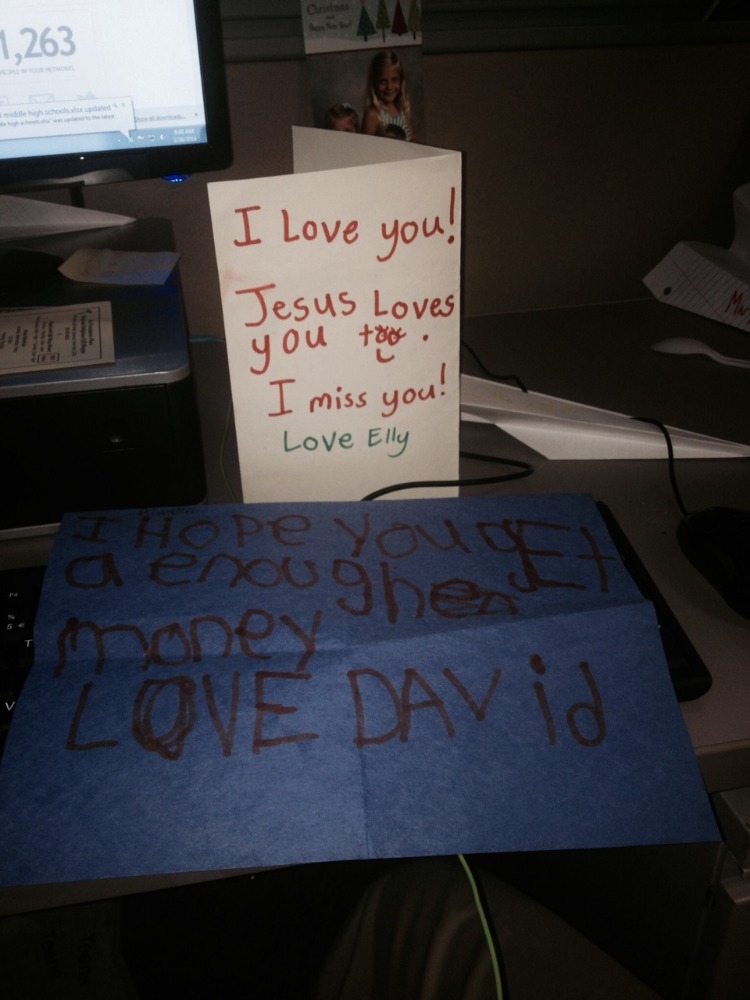 1,263
PEOPLE IN YOUR NETWORKS
middle high schools.xlsx updated
Christmas
and
Happy New Year!
I Love you!
Jesus Loves
you too.
I miss you!
Love Elly
I HOPE you gEt
a enougher
money
LOVE DAVid